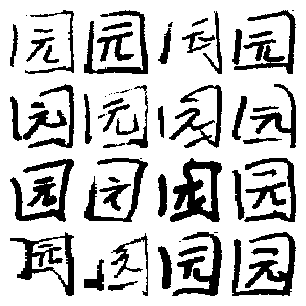 园园园园
园园园园
园园园园
园园园园